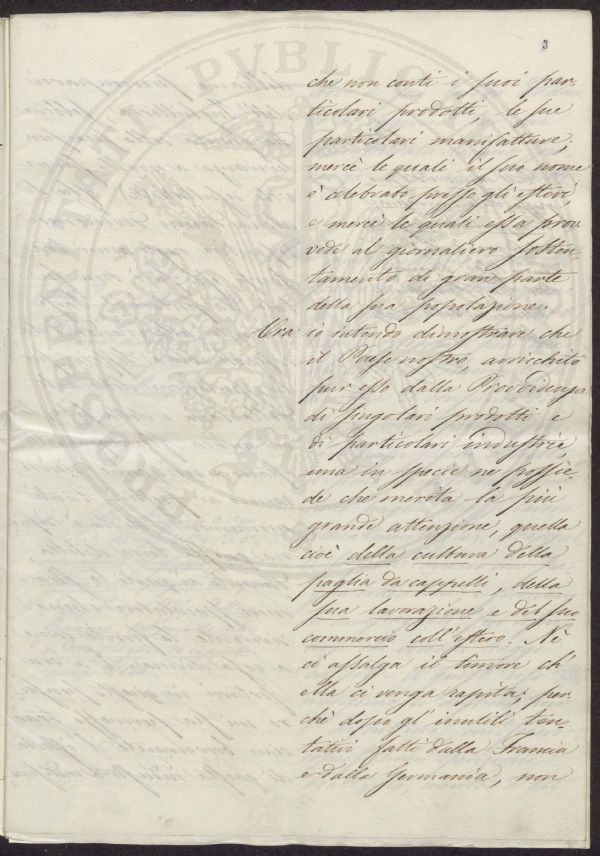 3
che non conti i suoi par-
ticolari prodotti le sue
particolari manifatture,
mercè le quali il suo nome
è celebrato presso gli esteri,
e mercè le quali essa prov-
vede al giornaliero sosten-
tamento di gran parte
della sua popolazione.
Ora io intendo dimostrare che
il Paese nostro, arricchito
pur esso dalla Provvidenza
di singolari prodotti e
di particolari industrie,
una in specie ne possie-
de che merita la più
grande attenzione, quella
cioè della cultura della
paglia da cappelli, della
sua lavorazione e del suo
commercio coll'estero. Nè
ci assalga il timore ch'
ella ci venga rapita; per-
chè dopo gl'inutili ten-
tativi fatti dalla Francia
e dalla Germania, non
PROSPERITATI PVBLICAE